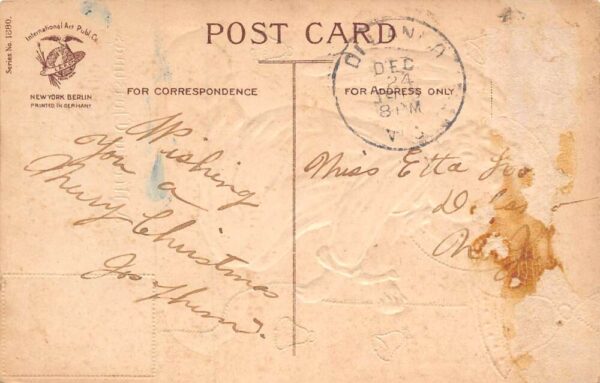 Series No. 1880.
International Art Publ. Co.
NEW YORK BERLIN
PRINTED IN GERMANY
POST CARD
DEC
24
8 PM
FOR CORRESPONDENCE
FOR ADDRESS ONLY
Wishing
you a
Merry Christmas
Miss Etta